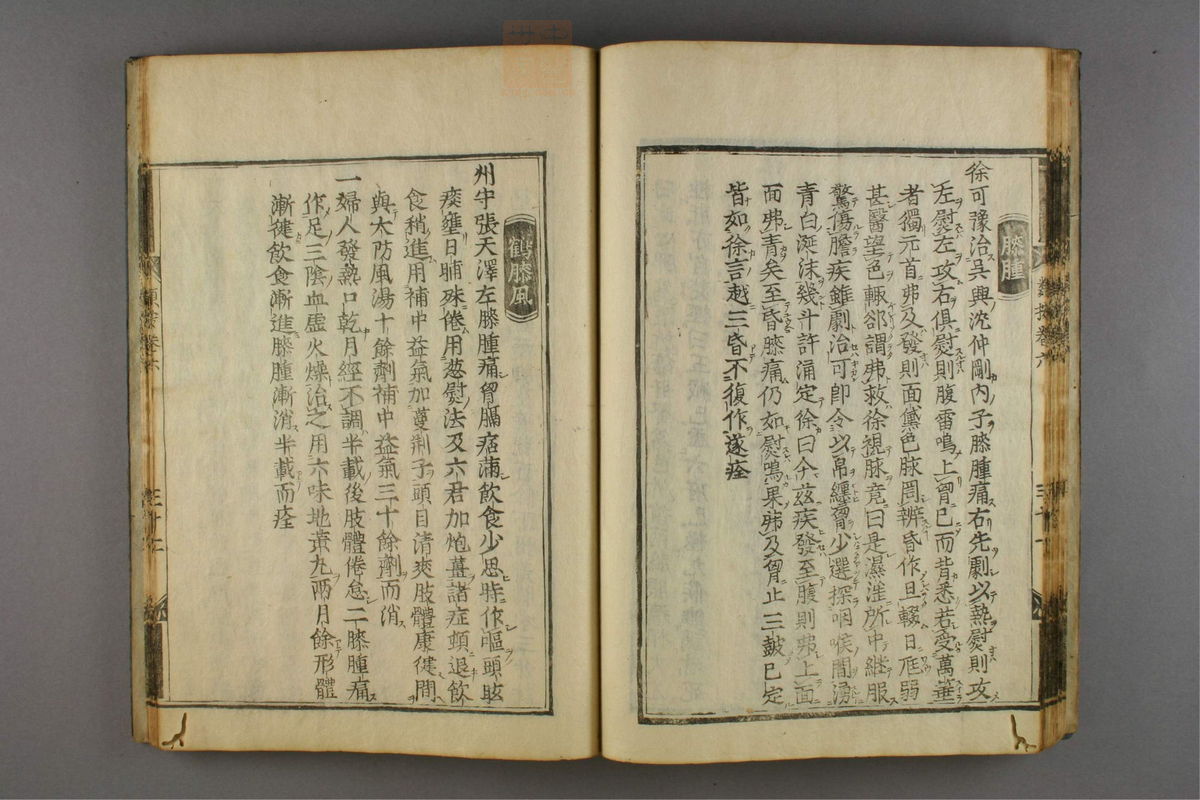 膝腫
徐可豫治吳興沈仲剛內子膝腫痛右先劇以熱熨則攻
左熨左攻右俱熨則腹雷鳴上胷已而背悉若受萬箠
者獨元首弗及發則面黛色脉罔辨昏作旦輟日尫弱
甚醫望色輒郤謂弗救徐視脉竟曰是濕淫所中繼服
驚傷膽疾雖劇治可卽令以帛纏胷少選探咽喉間湧
青白涎沫幾斗許涌定徐曰今兹疾發至腹則弗上面
面弗青矣至昏膝痛仍如熨鳴果弗及胷止三鼓已定
皆如徐言越三昏不復作遂痊
鶴膝風
州守張天澤左膝腫痛胷膈痞滿飲食少思時作嘔頭眩
痰壅日晡殊倦用葱熨法及六君加炮薑諸症頓退飲
食稍進用補中益氣加蔓荆子頭目清爽肢體康健間
與大防風湯十餘劑補中益氣三十餘劑而消
一婦人發熱口乾月經不調半載後肢體倦怠二膝腫痛
作足三陰血虛火燥治之用六味地黃丸兩月餘形體
漸健飲食漸進膝腫漸消半載而痊